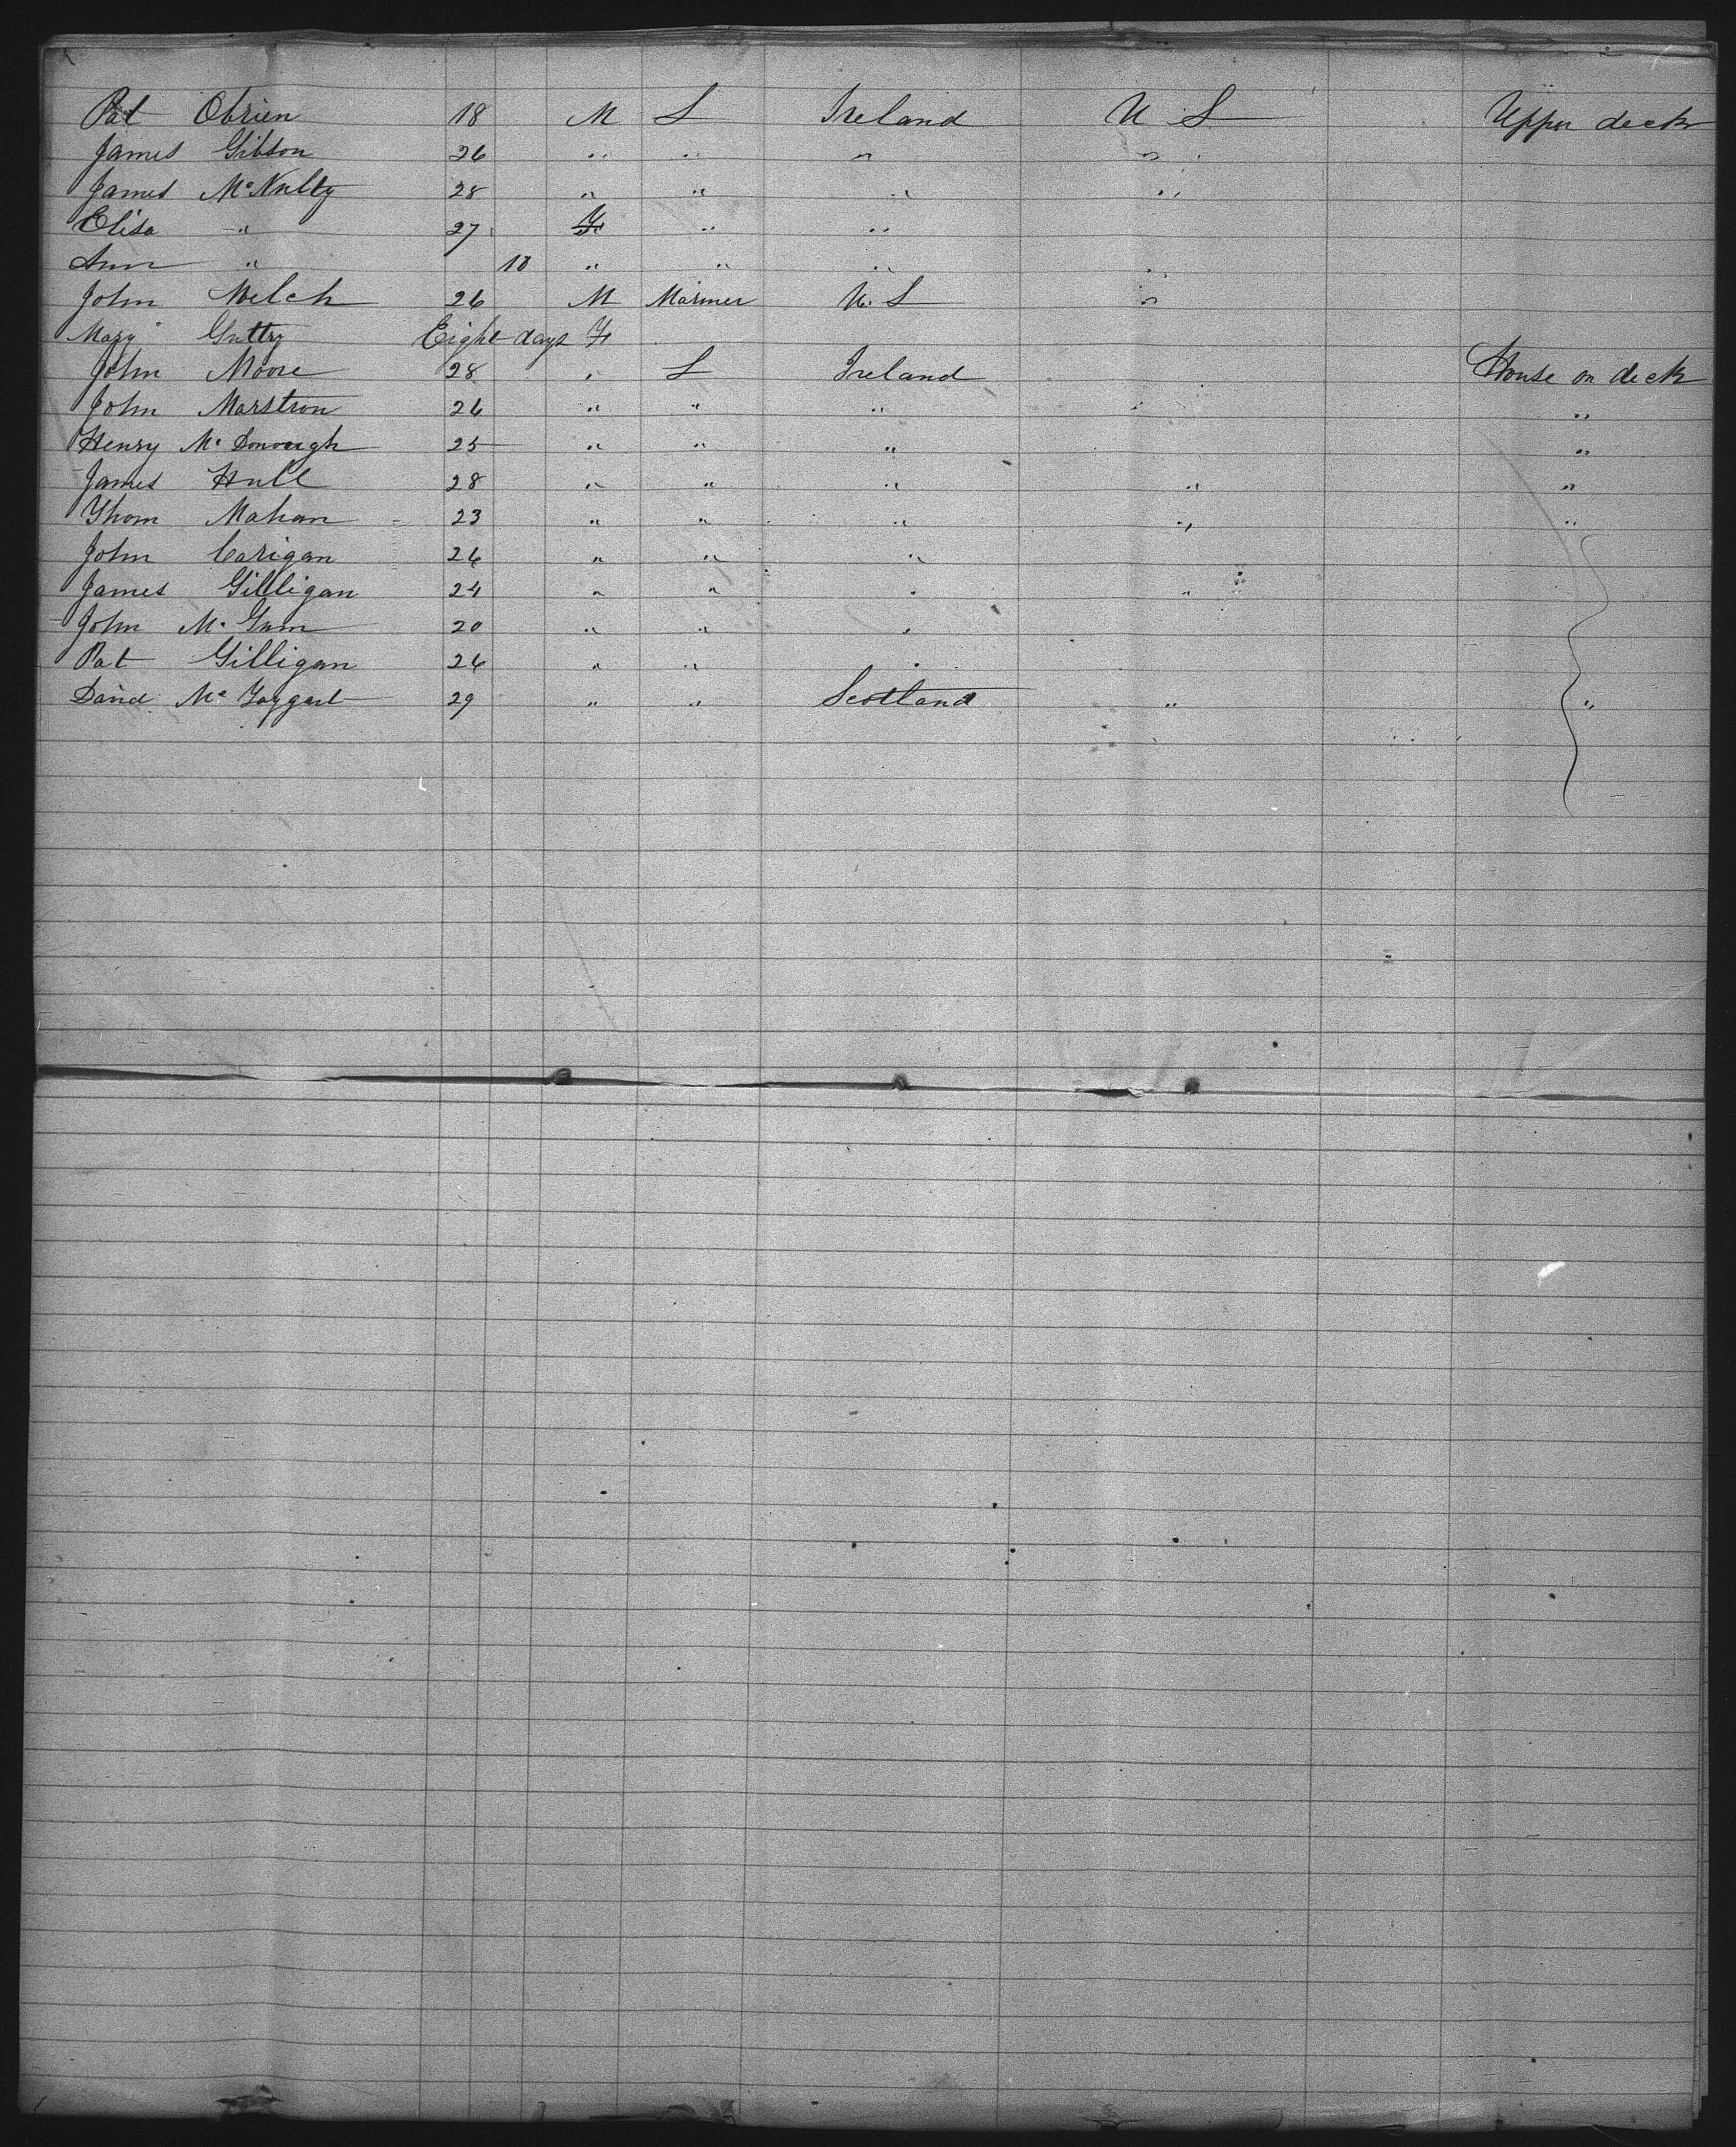 Pat Obrien 18 M L Ireland U S Upper deck
James Gibson 26 " " " "
James McNulty 28 " " " "
Elisa " 27 F " "
Ann " 10 " " " "
John Welch 26 M Mariner U. S "
Mary Eight days F
John Moore 28 " L Ireland House on deck
John 26 " " " " "
Henry McDonough 25 " " " "
James Hull 28 " " " " "
Thom Mahan 23 " " " " "
John Carigan 26 " " "
James Gilligan 24 " " " "
John 20 " " "
Pat Gilligan 26 " " "
David McTaggart 29 " " Scotland " "